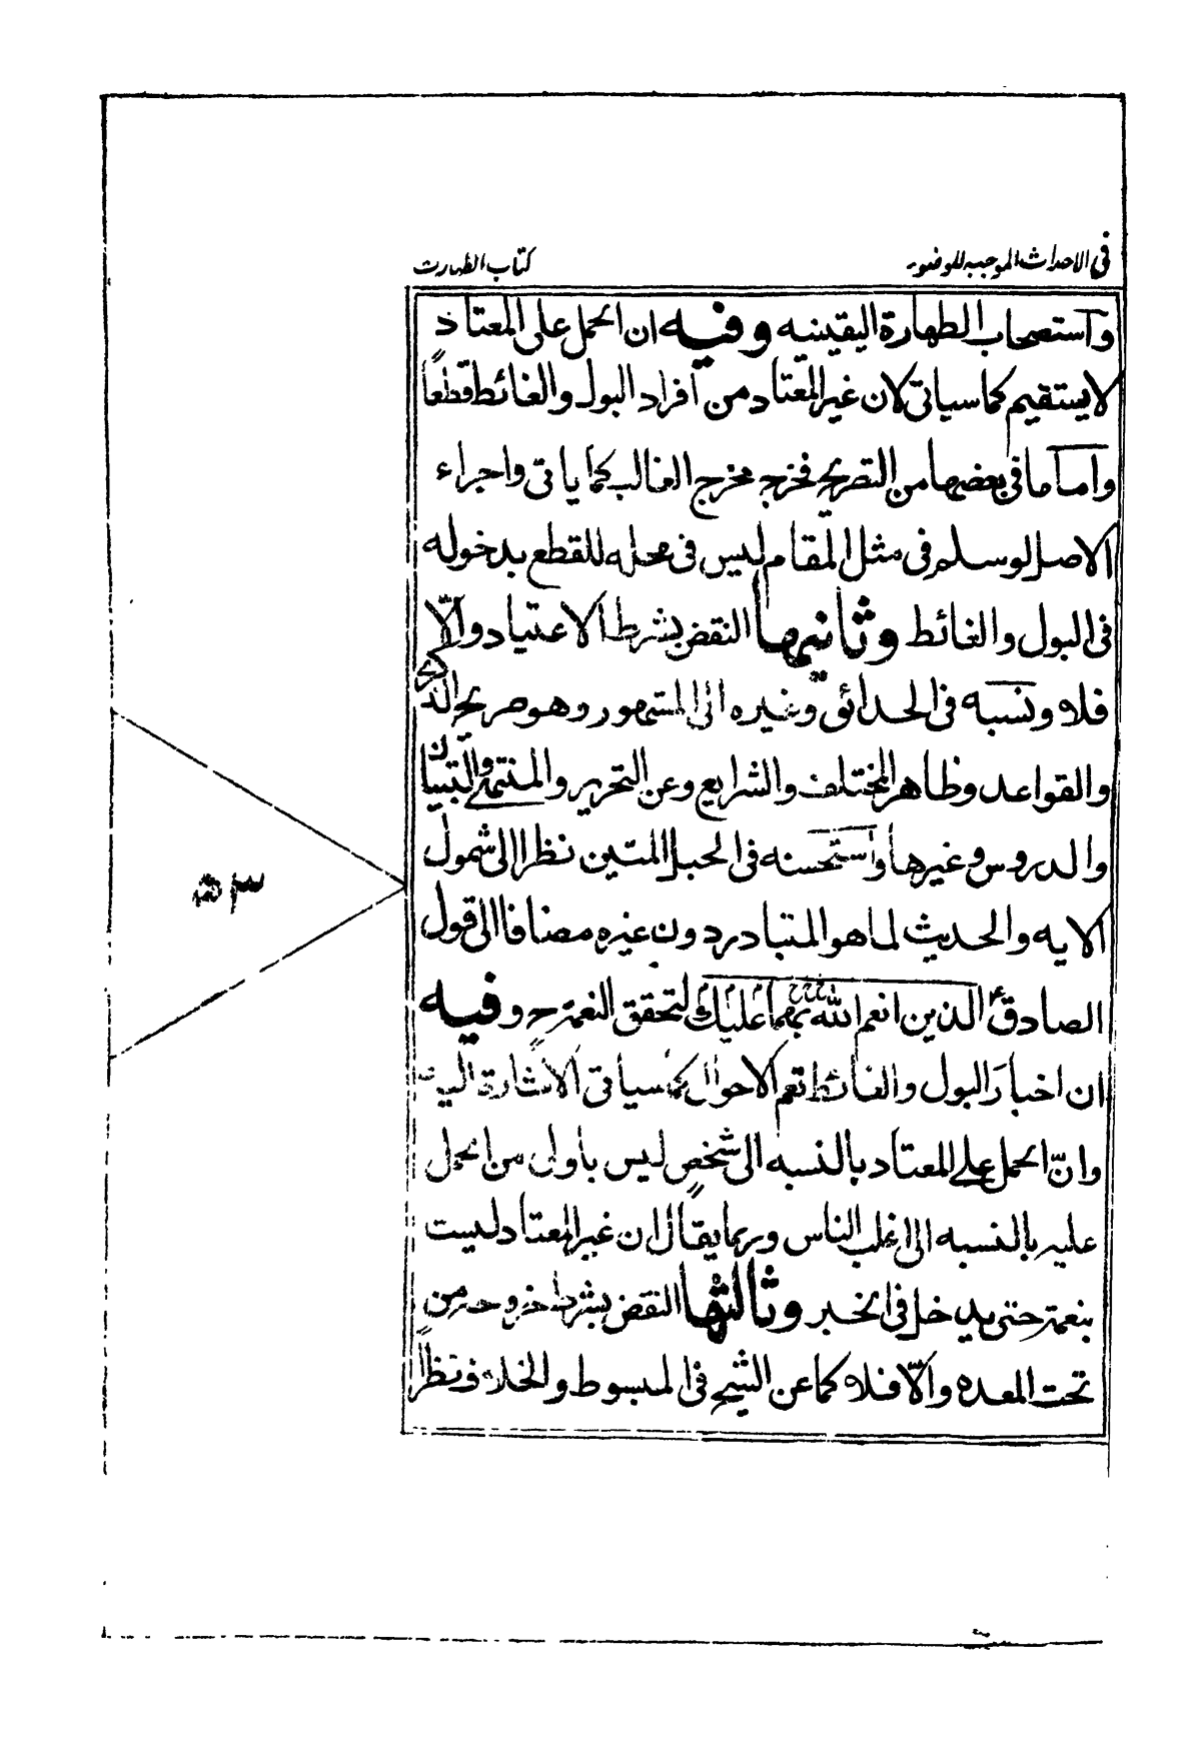 فى الاحداث الموجبه للوضوء
كتاب الطهارت
واستصحاب الطهارة اليقينيه وفيه ان الحمل على المعتاد
لا يستقيم كما سياتى لان غير المعتاد من افراد البول والغائط قطعاً
واما ما فى بعضها من التصريح فخرج مخرج الغالب كما ياتى واجراء
الاصل لو سلم فى مثل المقام ليس فى محله للقطع بدخوله
فى البول والغائط وثانيها النقض بشرط الاعتياد والّا
فلا ونسبه فى الحدائق وغيره الى المشهور وهو صريح الذكرى
والقواعد وظاهر المختلف والشرايع وعن التحرير والمنتهى والتبيان
والدروس وغيرها واستحسنه فى الحبل المتين نظرا الى شمول
الايه والحديث لما هو المتبادر دون غيره مضافا الى قول
الصادق ع الذين انعم الله بهما عليك لتحقق النعمة ح وفيه
ان اخبار البول والغائط تعم الاحوال كما سياتى الاشارة اليه
وانّ الحمل على المعتاد بالنسبه الى شخص ليس باولى من الحمل
عليه بالنسبه الى اغلب الناس وربما يقال ان غير المعتاد ليست
بنعمة حتى يدخل فى الخبر وثالثها النقض بشرط خروجه من
تحت المعده والّا فلا كما عن الشيخ فى المبسوط والخلاف نظراً
٥٣